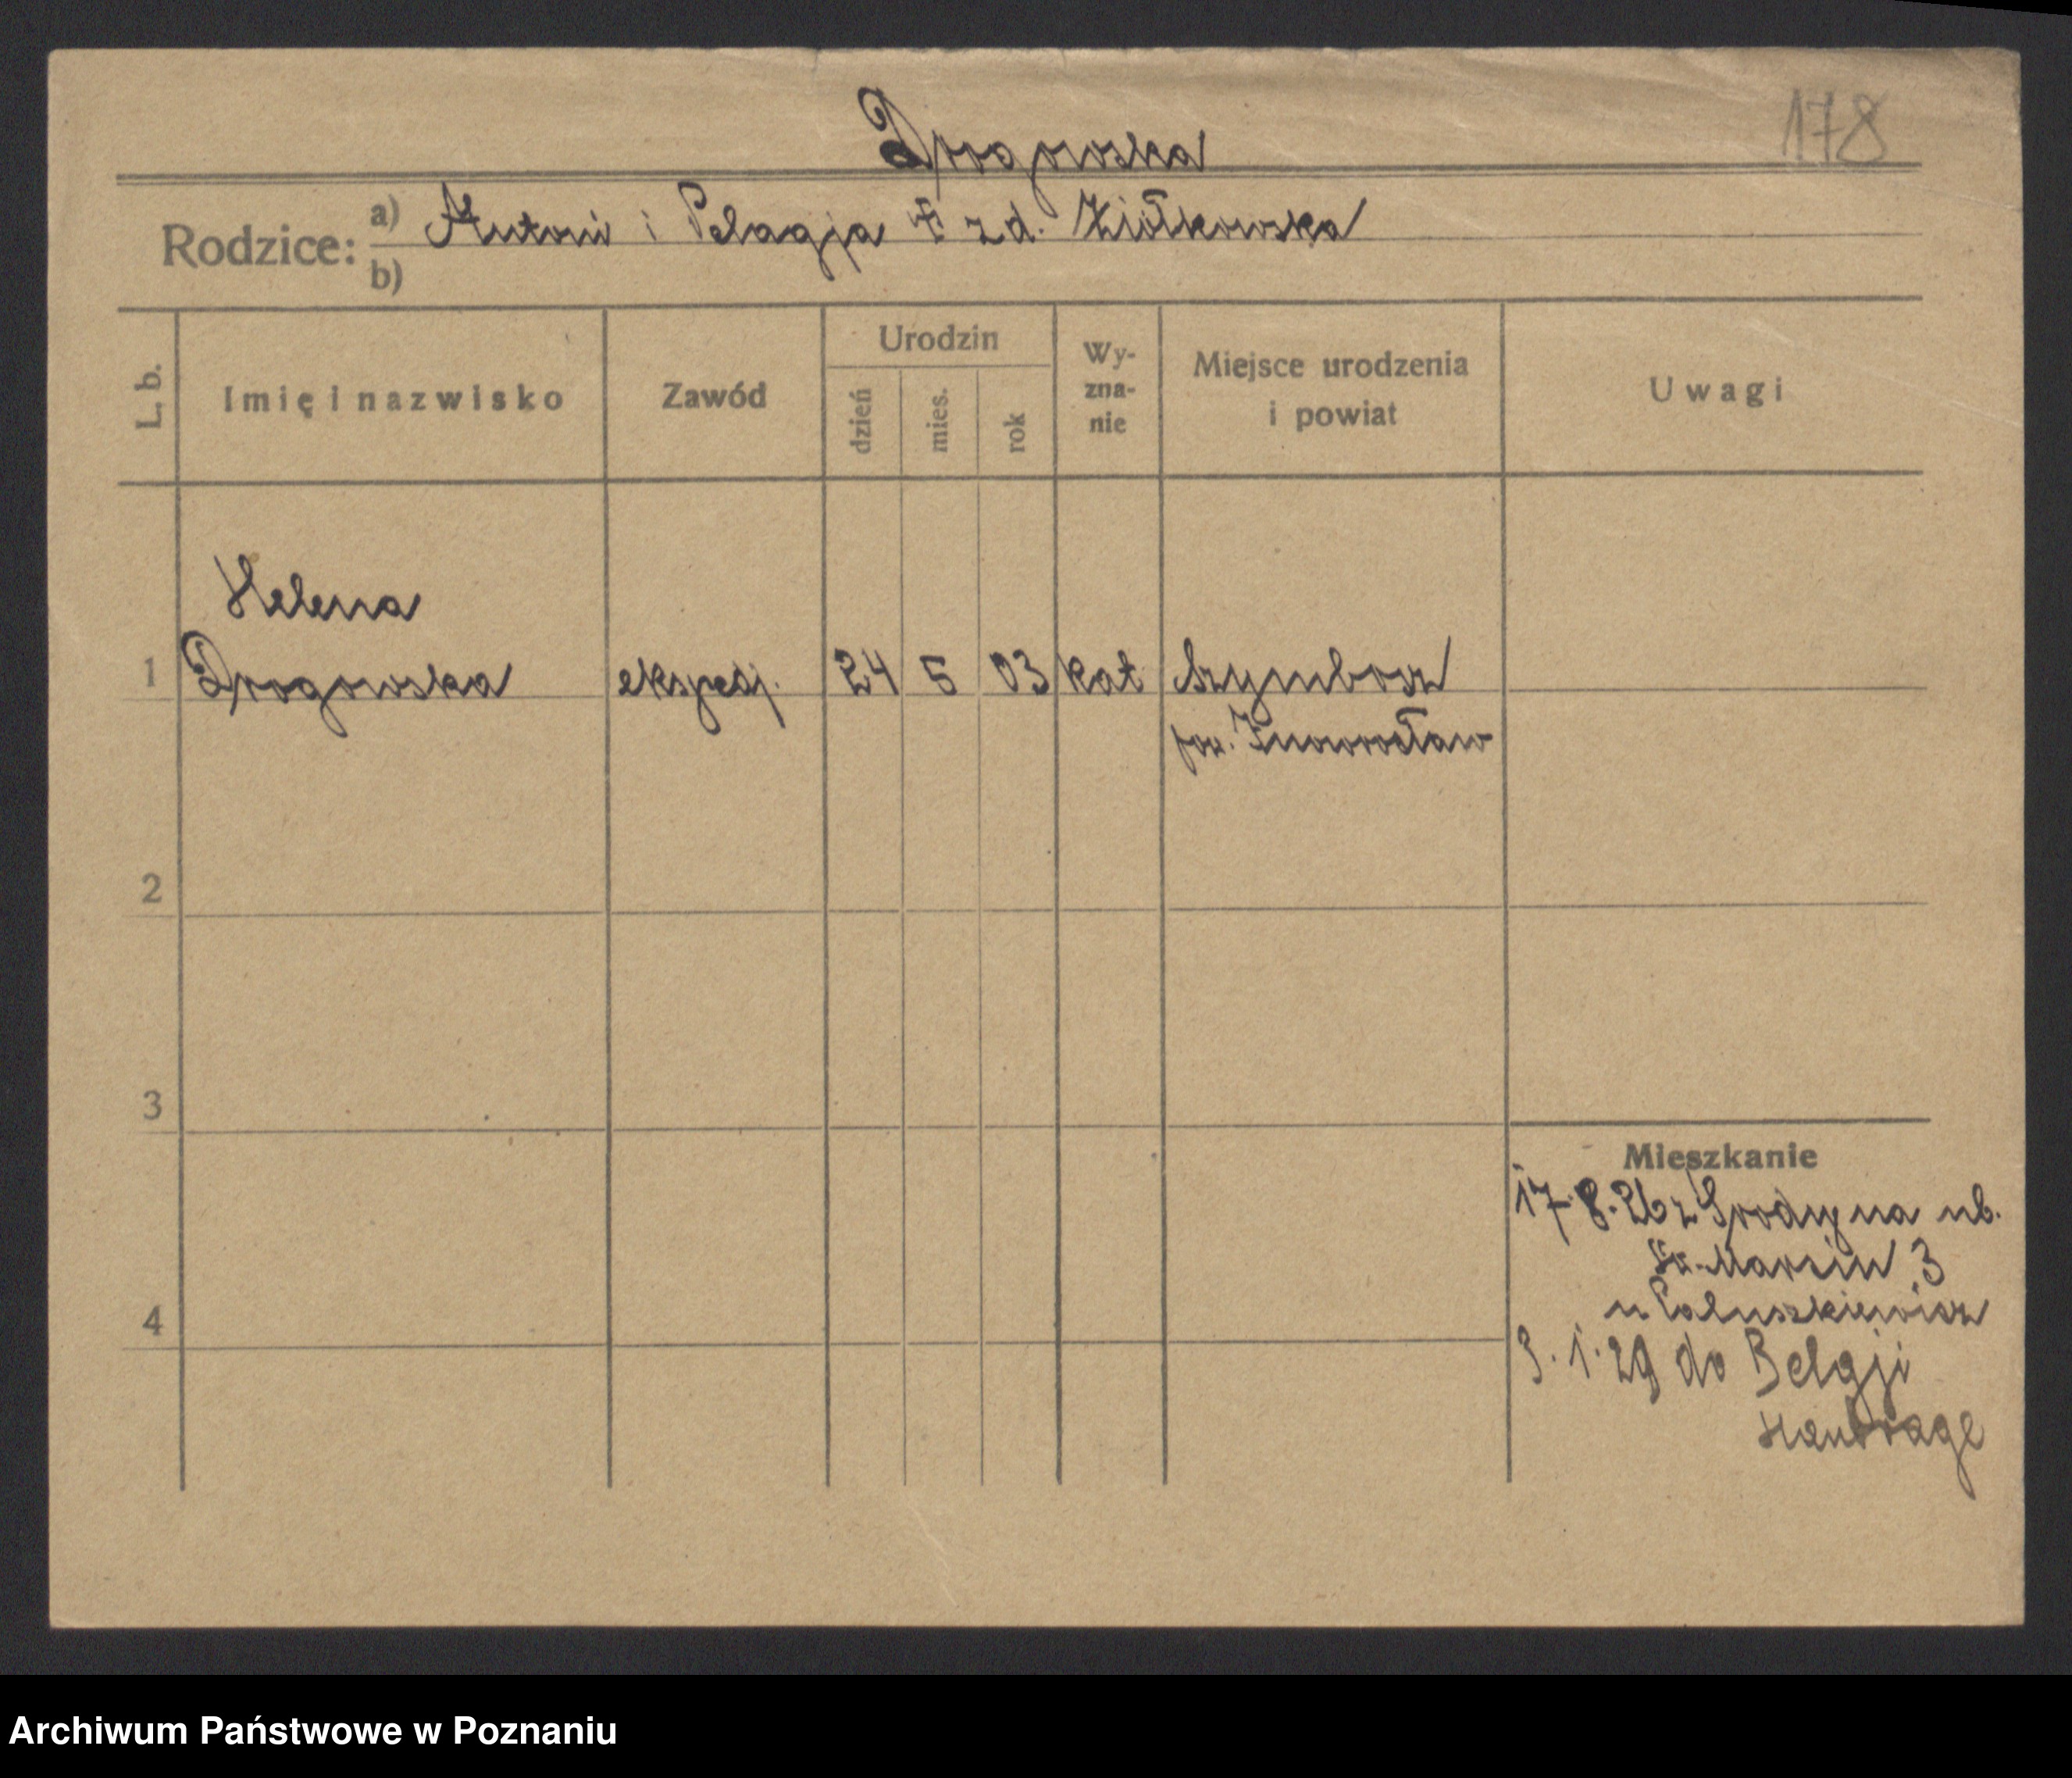 178
Drogowska
Rodzice:
a) Antoni i Pelagja zd. Ziółkowska
b)
L. b.
Imię i nazwisko
Zawód
Urodzin
dzień
mies.
rok
Wy-
zna-
nie
Miejsce urodzenia
i powiat
Uwagi
Helena
1 Drogowska ekspedj. 24 5 03 kat Szymborz
pow. Inowrocław
2
3
4
Mieszkanie
17.8.26 z Środy na ub.
św. Marcin 3
u Paluszkiewicz
3.1.29 do Belgji
Hautrage
Archiwum Państwowe w Poznaniu